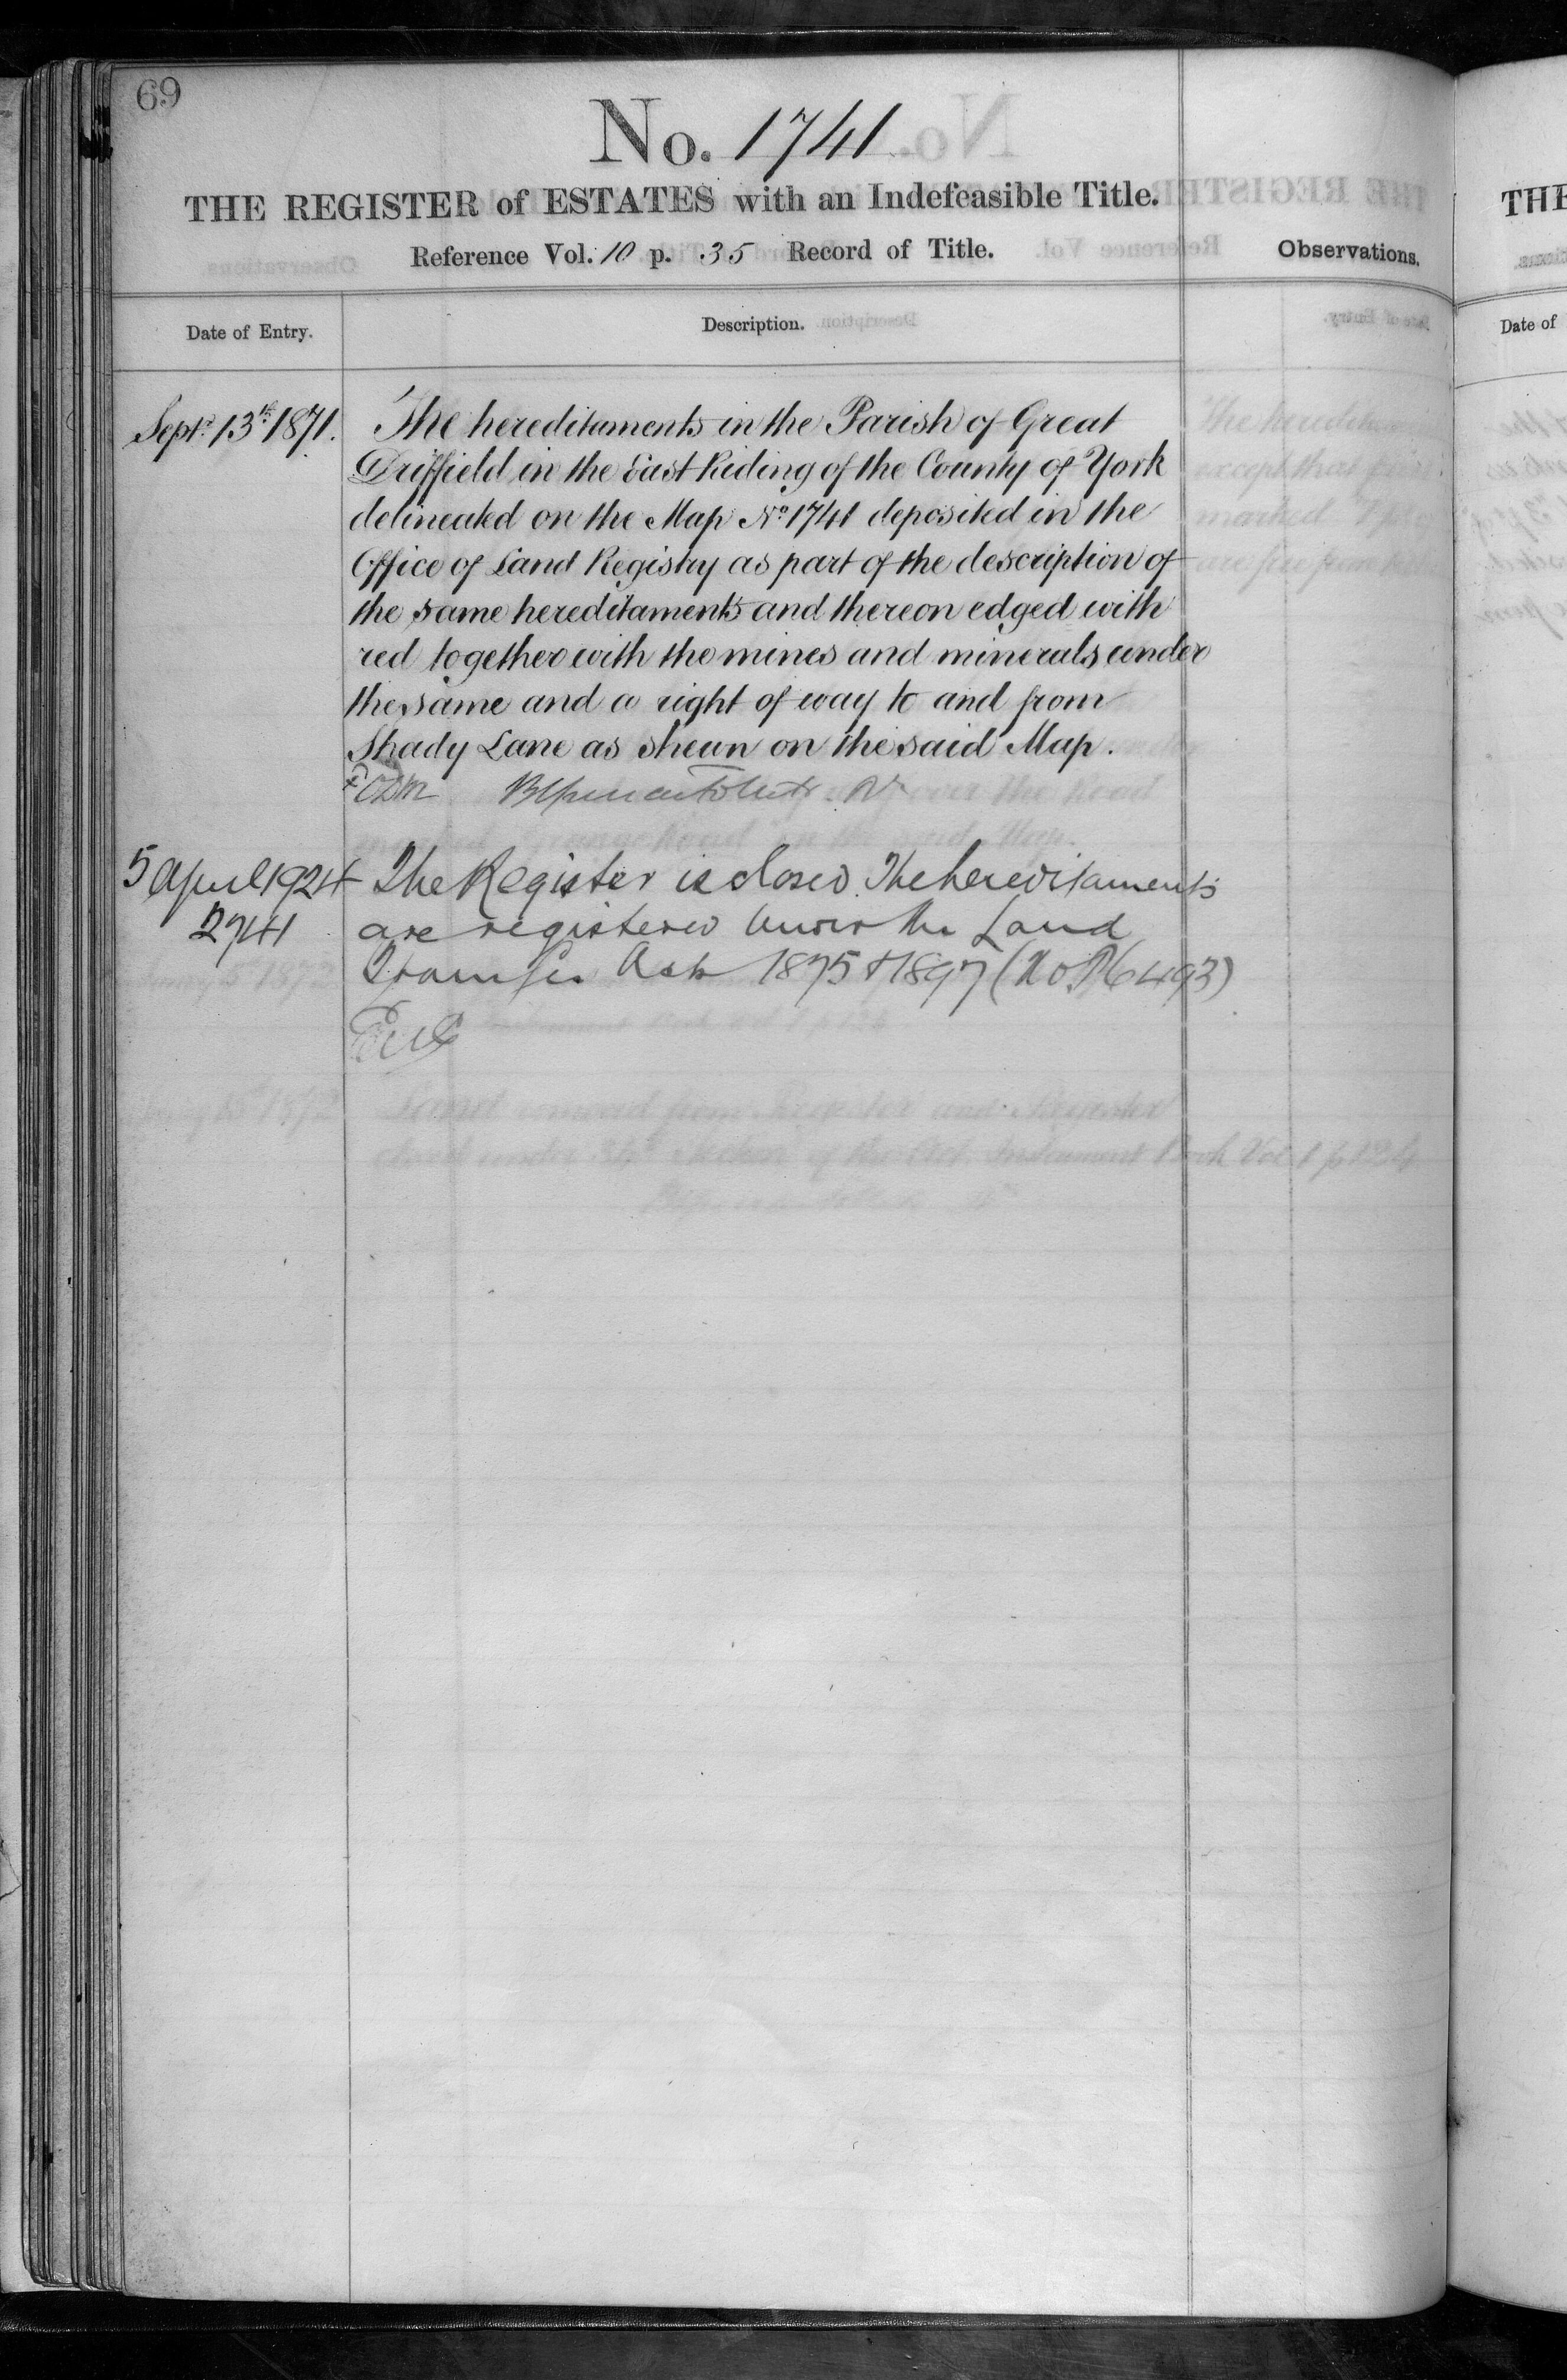 69
No. 1741
THE REGISTER of ESTATES with an Indefeasible Title.
Reference Vol. 10 p. 35 Record of Title.
Observations.
Date of Entry.
Description.
Septr. 13th 1871.
The hereditaments in the Parish of Great
Driffield in the East Riding of the County of York
delineated on the Map No 1741 deposited in the
Office of Land Registry as part of the description of
the same hereditaments and thereon edged with
red together with the mines and minerals under
the same and a right of way to and from
Shady Lane as shewn on the said Map.
5 April 1924
2741
The Register is closed. The hereditaments
are registered under the Land
Transfer Acts 1875 & 1897 (No P6493)
THE
Date of